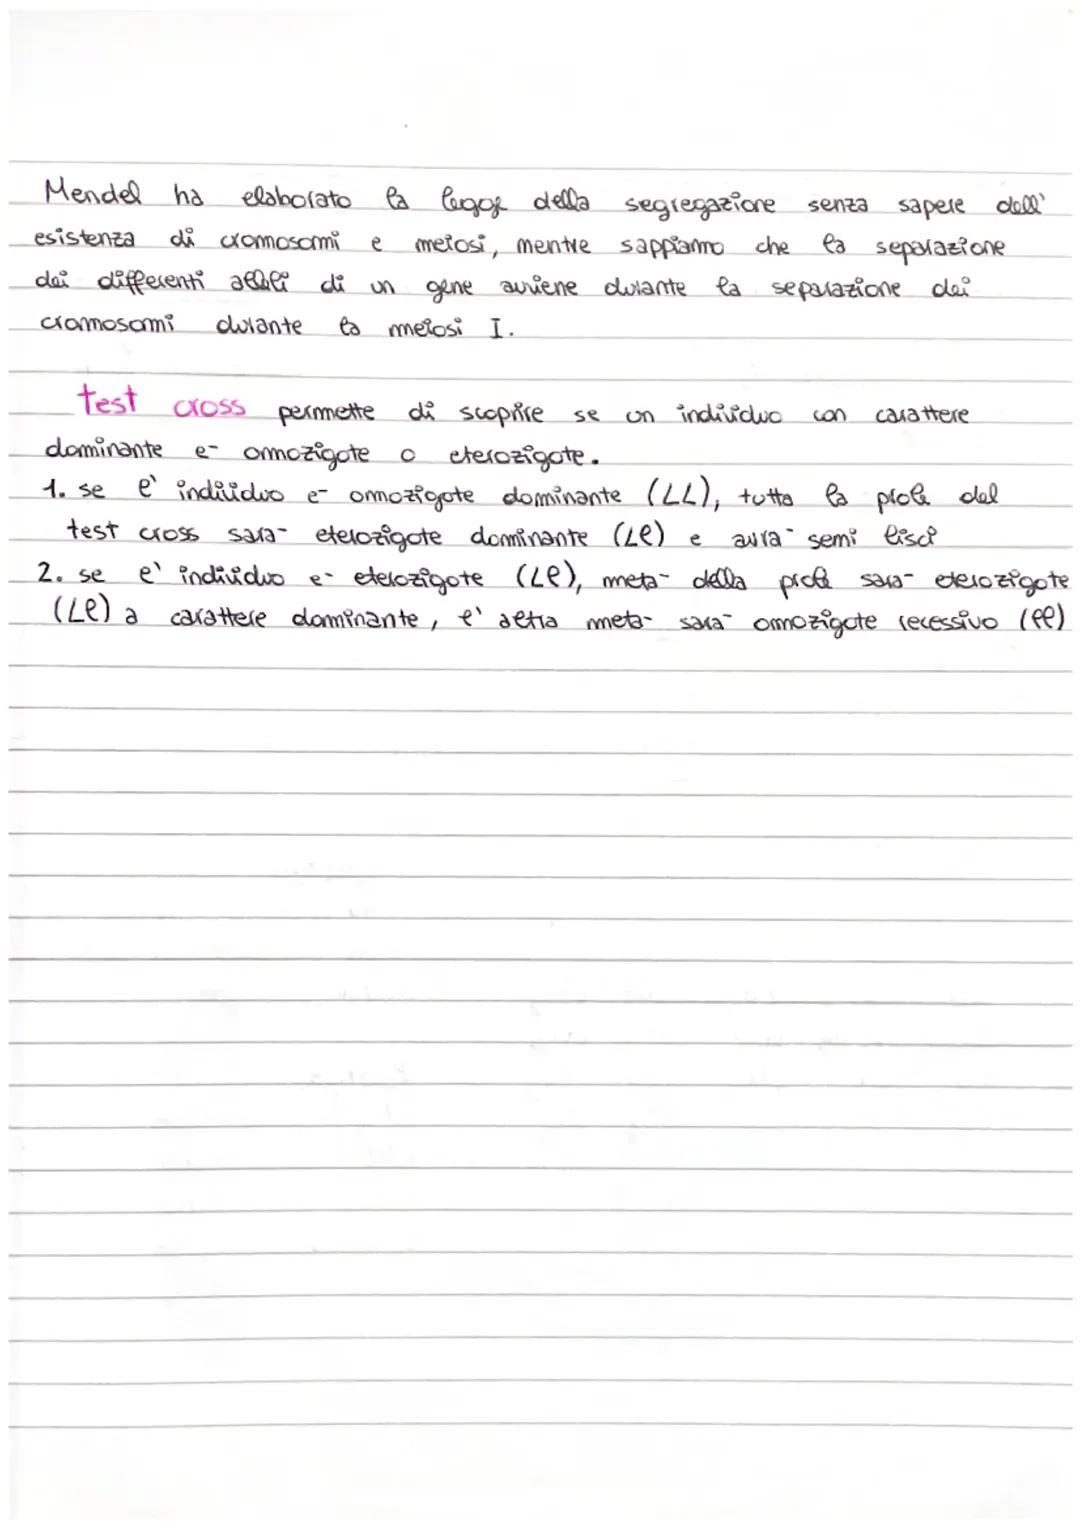 Mendel ha elaborato la legge della segregazione senza sapere dell'
esistenza di cromosomi e meiosi, mentre sappiamo che la separazione
dei differenti alleli di un gene avviene durante la separazione dei
cromosomi durante la meiosi I.
test cross permette di scoprire se un individuo con carattere
dominante e- omozigote o eterozigote.
1. se l' individuo e- omozigote dominante (LL), tutta la prole del
test cross sara- eterozigote dominante (Ll) e avra- semi lisci
2. se l' individuo e- eterozigote (Ll), meta- della prole sara- eterozigote
(Ll) a carattere dominante, l' altra meta- sara- omozigote recessivo (ll)